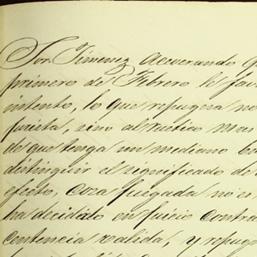 Sor. Jimenez acuerando q
primero de Febrero le fav
intento, lo que repugna no
jurista, sino al rustico mas
de que tenga un mediano
distinguir el significado de
efecto, Coza juzgada no es
ha decidido en juicio contra
centencia valida, y repug